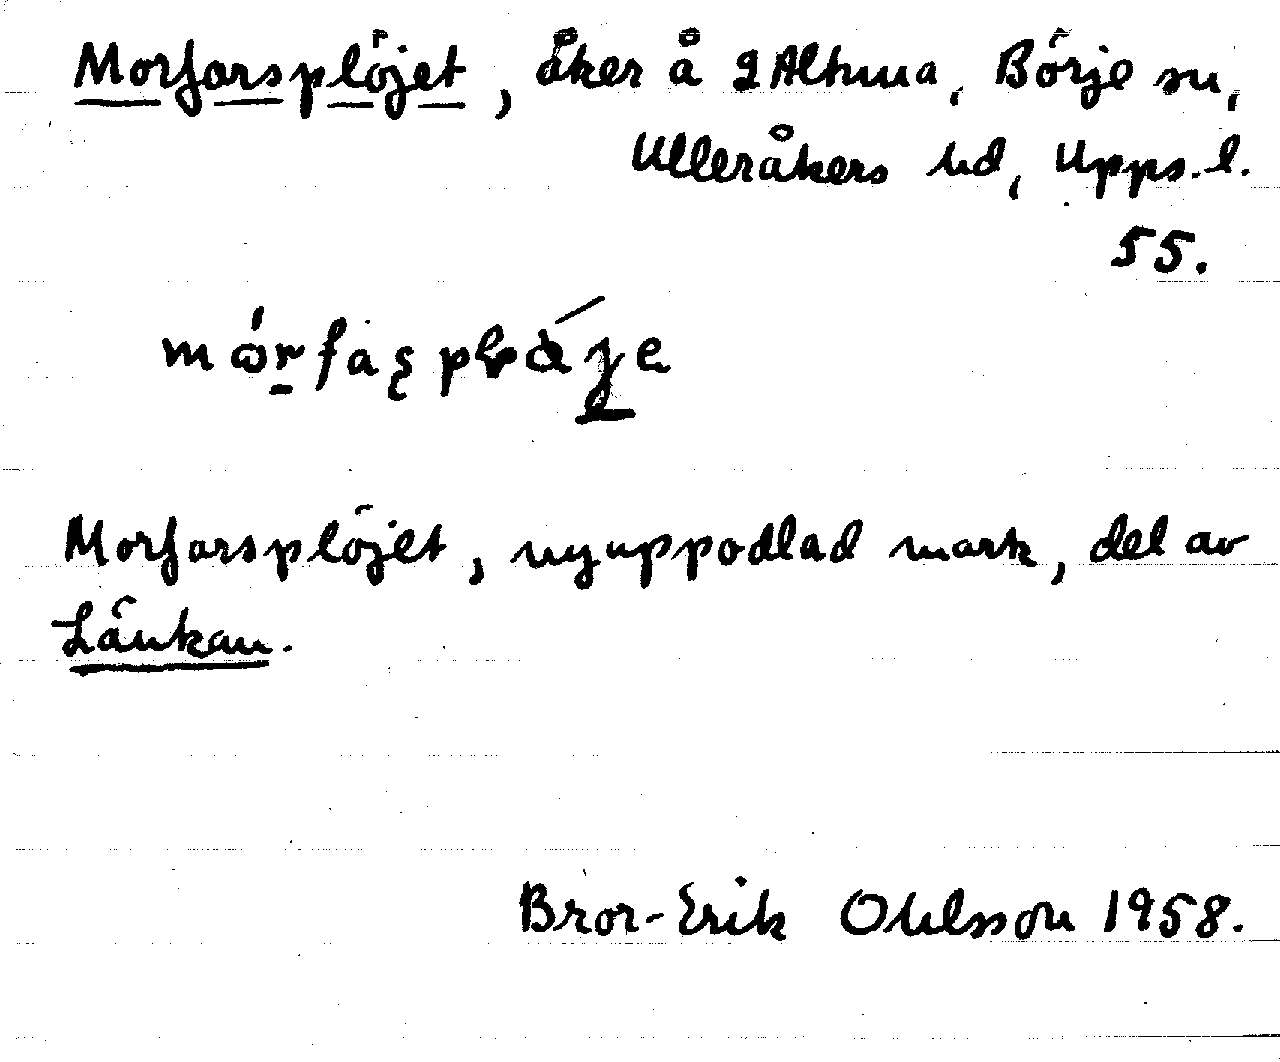 Morfarsplöjet, åker å 2 Altuna, Börje sn,
Ulleråkers hd, Upps. l.
55.
Morfarsplöjet, nyuppodlad mark, del av
Länkan.
Bror-Erik Ohlsson 1958.